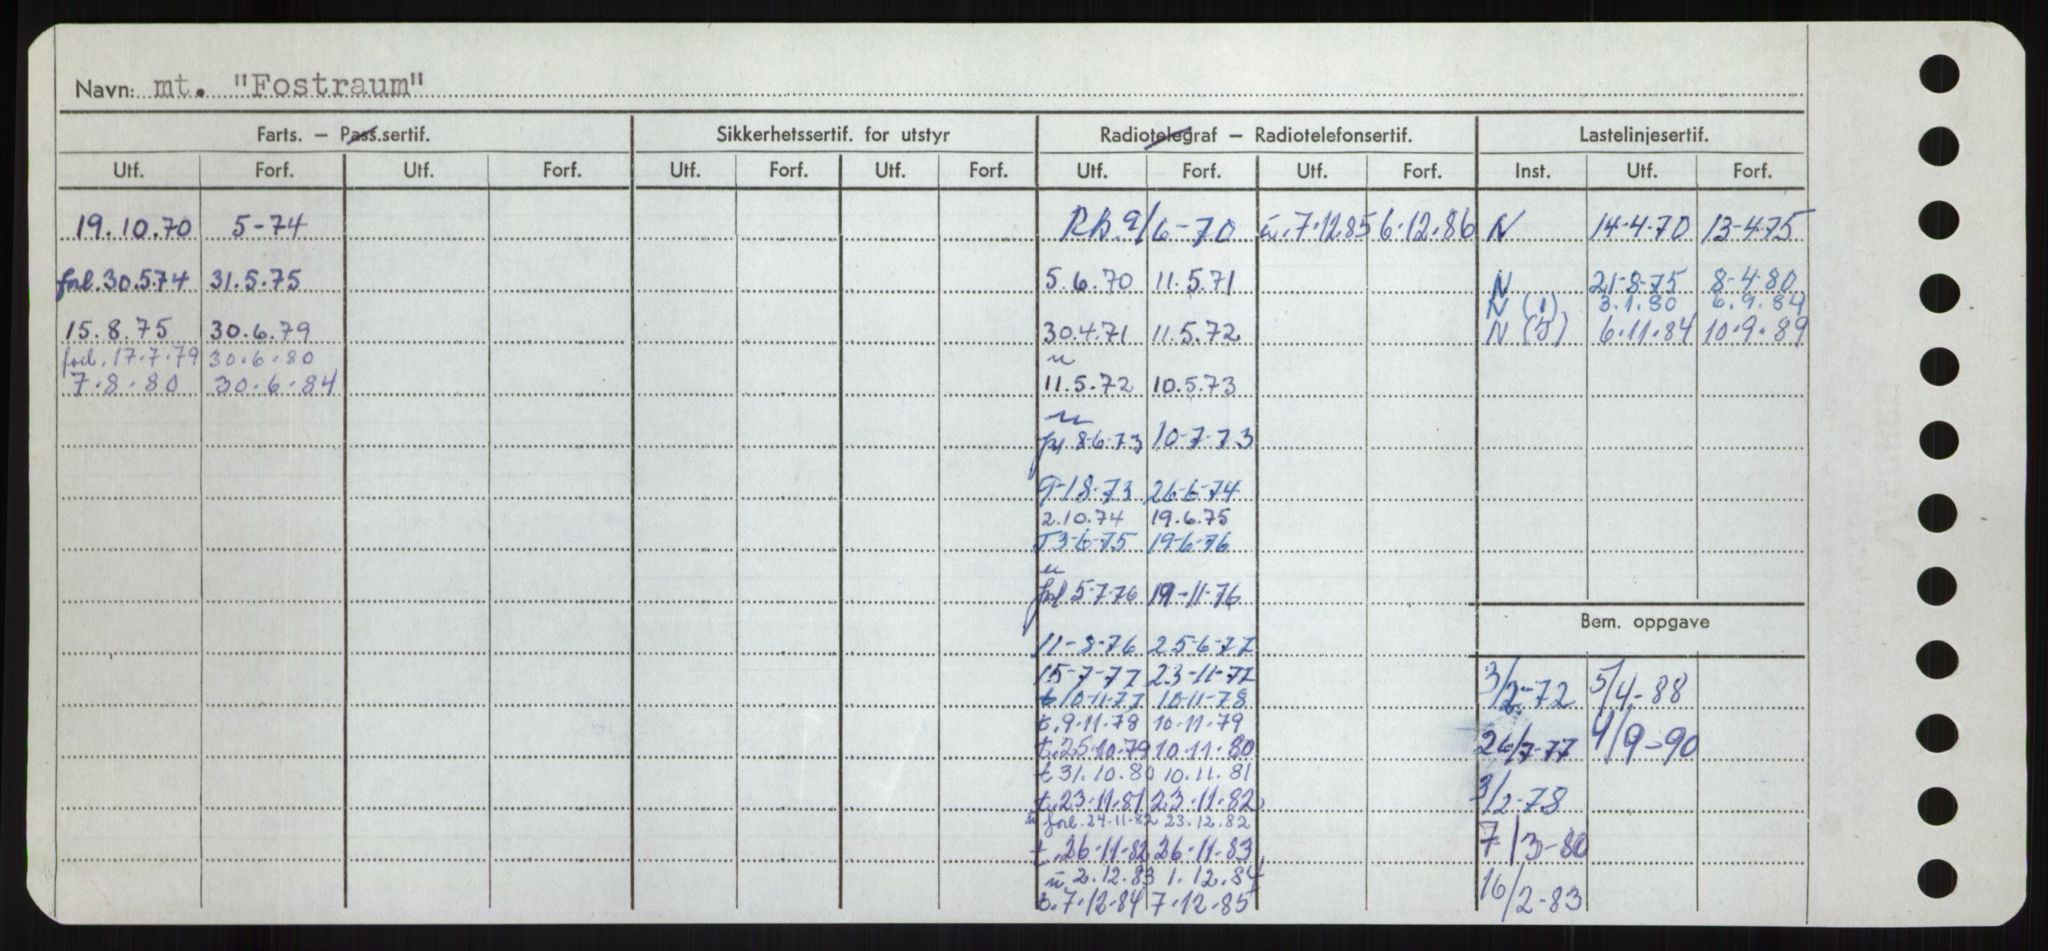 Navn: mt. "Fostraum"
Farts. – Pass.sertif. Sikkerhetssertif. for utstyr Radiotelegraf – Radiotelefonsertif. Lastelinjesertif.
Utf. Forf. Utf. Forf. Utf. Forf. Utf. Forf. Utf. Forf. Utf. Forf. Inst. Utf. Forf.
19.10.70 5-74 9/6-70 7.12.85 6.12.86 N 14-4-70 13-4-75
forl. 30.5.74 31.5.75 5.6.70 11.5.71 N 21-8-75 8-4-80
N (1) 3.1.80 6.9.84
15.8.75 30.6.79 30.4.71 11.5.72 N 6.11.84 10.9.89
forl. 17.7.79 30.6.80
7.8.80 30.6.84 11.5.72 10.5.73
8-6-73 10-7-73
26-6-74
2.10.74 19.6.75
3-6-75 19-6-76
forl 5-7-76 19-11-76
Bem. oppgave
11-8-76 25-6-77
15-7-77 23-11-77 3/2-72 5/4-88
t 10-11-77 10-11-78
t. 9.11.78 10.11.79
t. 25.10.79 10.11.80 26/7-77 4/9-90
t 31.10.80 10.11.81
t. 23.11.81 23.11.82 3/2-78
forl. 24.11.82 23.12.82
t. 26.11.82 26.11.83 7/3-80
2.12.83 1.12.84
7.12.84 7.12.85 16/2-83